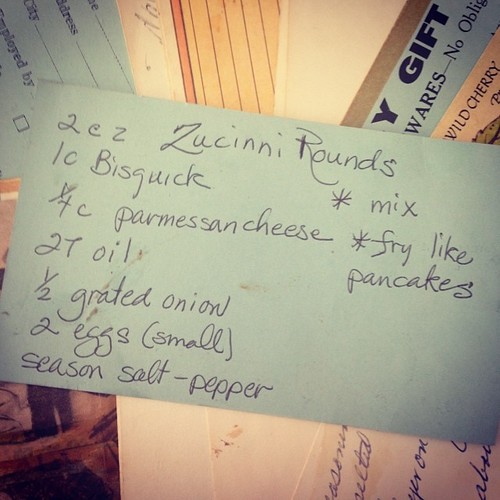 Employed by
City
Address
Y GIFT
WARES—No Oblig
WILDCHERRY
2 c z Zucinni Rounds
1c Bisquick
* mix
1/4c parmessancheese
*fry like
pancakes
2T oil
1/2 grated onion
2 eggs (small)
season salt-pepper